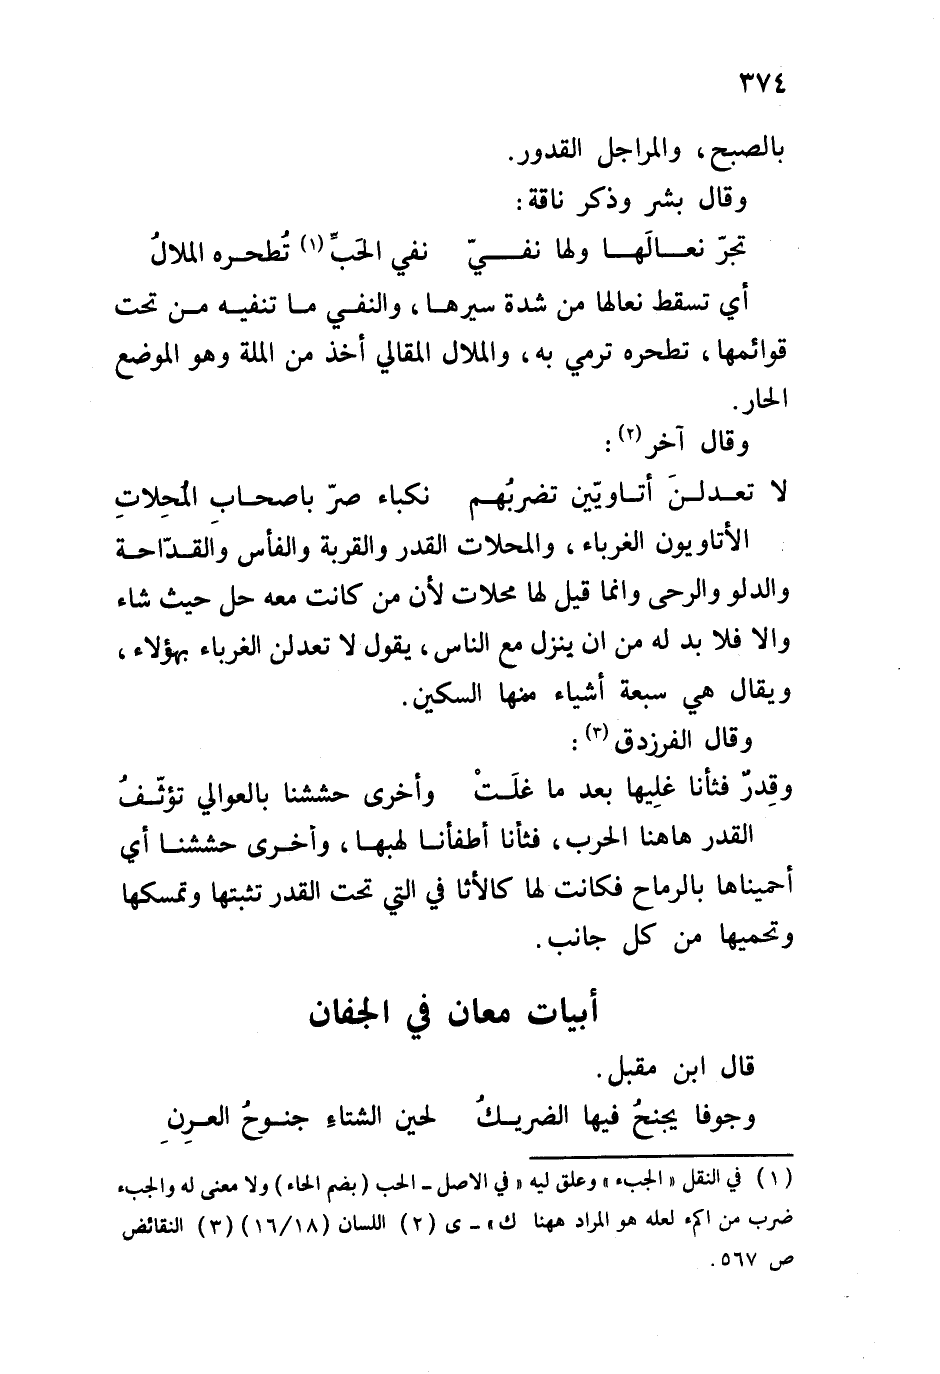 ٣٧٤
بالصبح، والمراجل القدور.
وقال بشر وذكر ناقة:
تجرّ نعـالَهـا ولها نفـيّ نفي الحَبِّ (١) تُطحره الملالُ
أي تسقط نعالها من شدة سيرها، والنفي ما تنفيه من تحت
قوائمها، تطحره ترمي به، والملال المقالي أخذ من الملة وهو الموضع
الحار.
وقال آخر (٢) :
لا تعدلنَ أتاويّين تضربُهم نكباء صرّ باصحابِ المُحِلاتِ
الأتاويون الغرباء، والمحلات القدر والقربة والفأس والقدّاحة
والدلو والرحى وانما قيل لها محلات لأن من كانت معه حل حيث شاء
والا فلا بد له من ان ينزل مع الناس، يقول لا تعدلن الغرباء بهؤلاء،
ويقال هي سبعة أشياء منها السكين.
وقال الفرزدق (٣) :
وقِدرٌ فثأنا غلِيها بعد ما غلَتْ وأخرى حششنا بالعوالي تؤثّفُ
القدر هاهنا الحرب، فثأنا أطفأنا لهبها، وأخرى حششنا أي
أحميناها بالرماح فكانت لها كالأثا في التي تحت القدر تثبتها وتمسكها
وتحميها من كل جانب.
أبيات معان في الجفان
قال ابن مقبل.
وجوفا يجنحُ فيها الضريكُ لحين الشتاءِ جنوحُ العرِنِ
(١) في النقل «الجبء» وعلق ليه « في الاصل ـ الحب (بضم الحاء) ولا معنى له والجبء
ضرب من اكمء لعله هو المراد ههنا ك» ـ ى (٢) اللسان (١٦/١٨) (٣) النقائض
ص ٥٦٧.